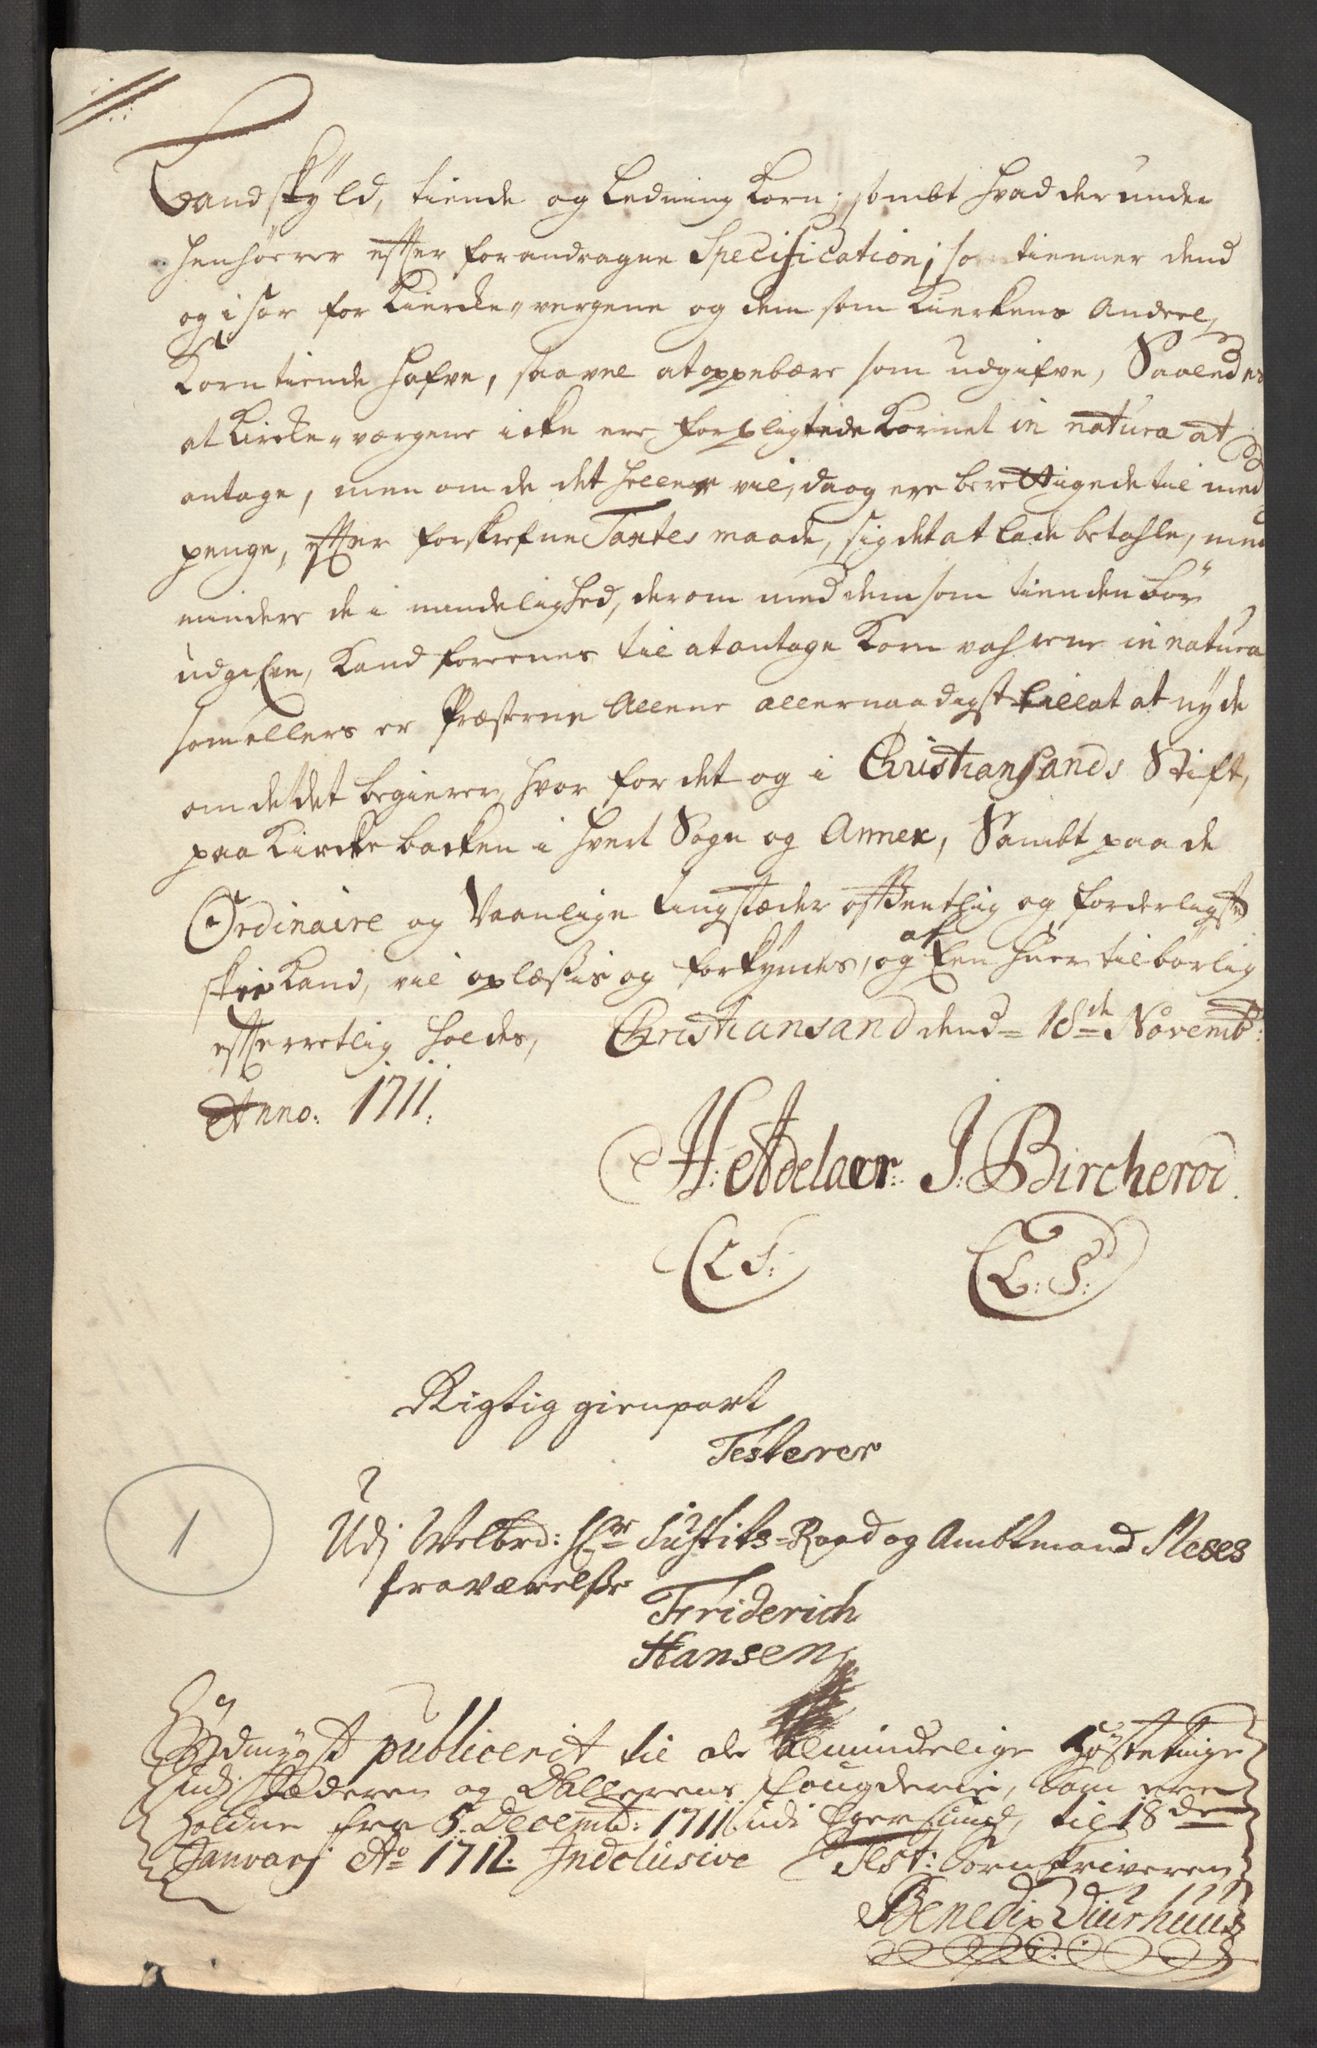 Landskyld, tiende og Ledning Korn, sambt hvad der under
henhörer efter forandragne Specification; som tienner dend
og i sær for Kircke-vergene og dem som Kierkens Andeel,
Korntiende hafve, saavel at oppebære som udgifve, Saaledes
at Kircke-værgene icke ere forpligtede Kornet in natura at
antage, men om de det heller vil, da og ere berettigede til med
penge, efter forskrefne Taxtes maade, sig det at lade betahle, med
mindre de i mindelighed, derom med dem som tienden bör
udgifve, Kand foreenes til at antage Korn vahrene in natura
som ellers er Præsterne Allene allernaadigst tillat at nyde
om de det begierer, hvor for det og i Christiansands Stift,
paa Kircke backen i hvert Sogn og Annex, Sambt paa de
Ordinaire og Vaanlige tingstæder offentlig og forderligste
skee Kand, vil oplæsis og forkyndes, og af Een huer tilbörlig
efterretlig holdes, Christiansand dend 18de Novemb:
Anno: 1711.
H: Adelaer. J: Bircherod.
L S: L: S:
Rigtig gienpart
Testerer
Udj Welbrd: Hr Justits-Raad og Ambtmand Neses
fraværelse
Friderich
Hansen
1
Ydmygst publicerit til de almindelige Höstetinge
udj Jæderen og Dallerens fougderie, som ere
holdne fra 5. Decemb: 1711 udi Egersund, til 18den
Januarj Ao 1712. Inclusive Test: Sornskriveren
Benedix Diurhuus